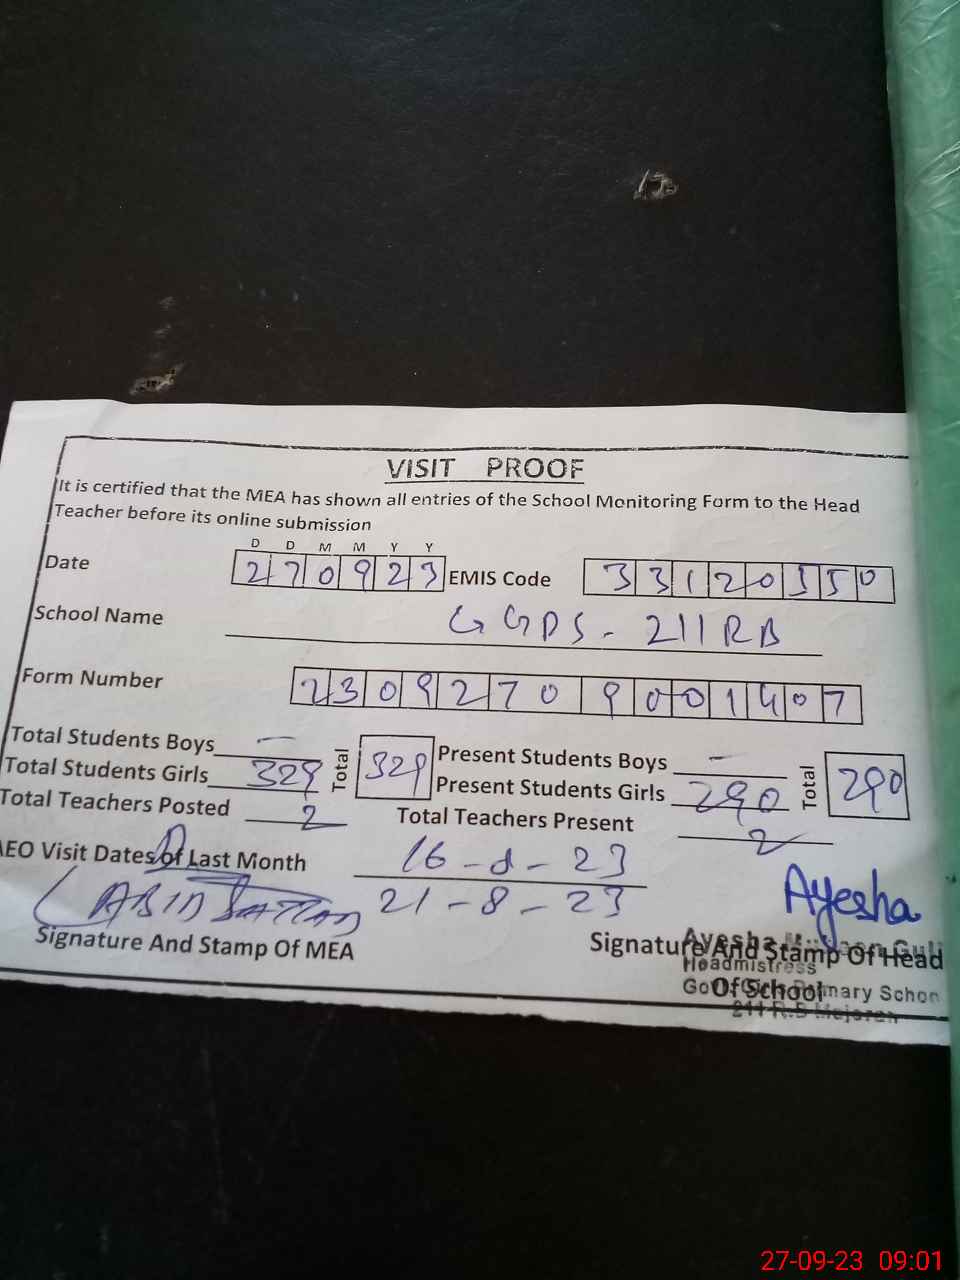 VISIT PROOF
It is certified that the MEA has shown all entries of the School Monitoring Form to the Head
Teacher before its online submission
D D M M Y Y
Date 270923 EMIS Code 33120350
School Name GGPS - 211RB
Form Number 2309270 9001407
Total Students Boys - Total 329 Present Students Boys - Total 290
Total Students Girls 329 Present Students Girls 290
Total Teachers Posted 2 Total Teachers Present 2
AEO Visit Dates of Last Month 16-8-23
21-8-23
ABID Ayesha
Signature And Stamp Of MEA Signature And Stamp Of Head
Of School
Ayesha
Headmistress
Primary School
211 R.B
27-09-23 09:01